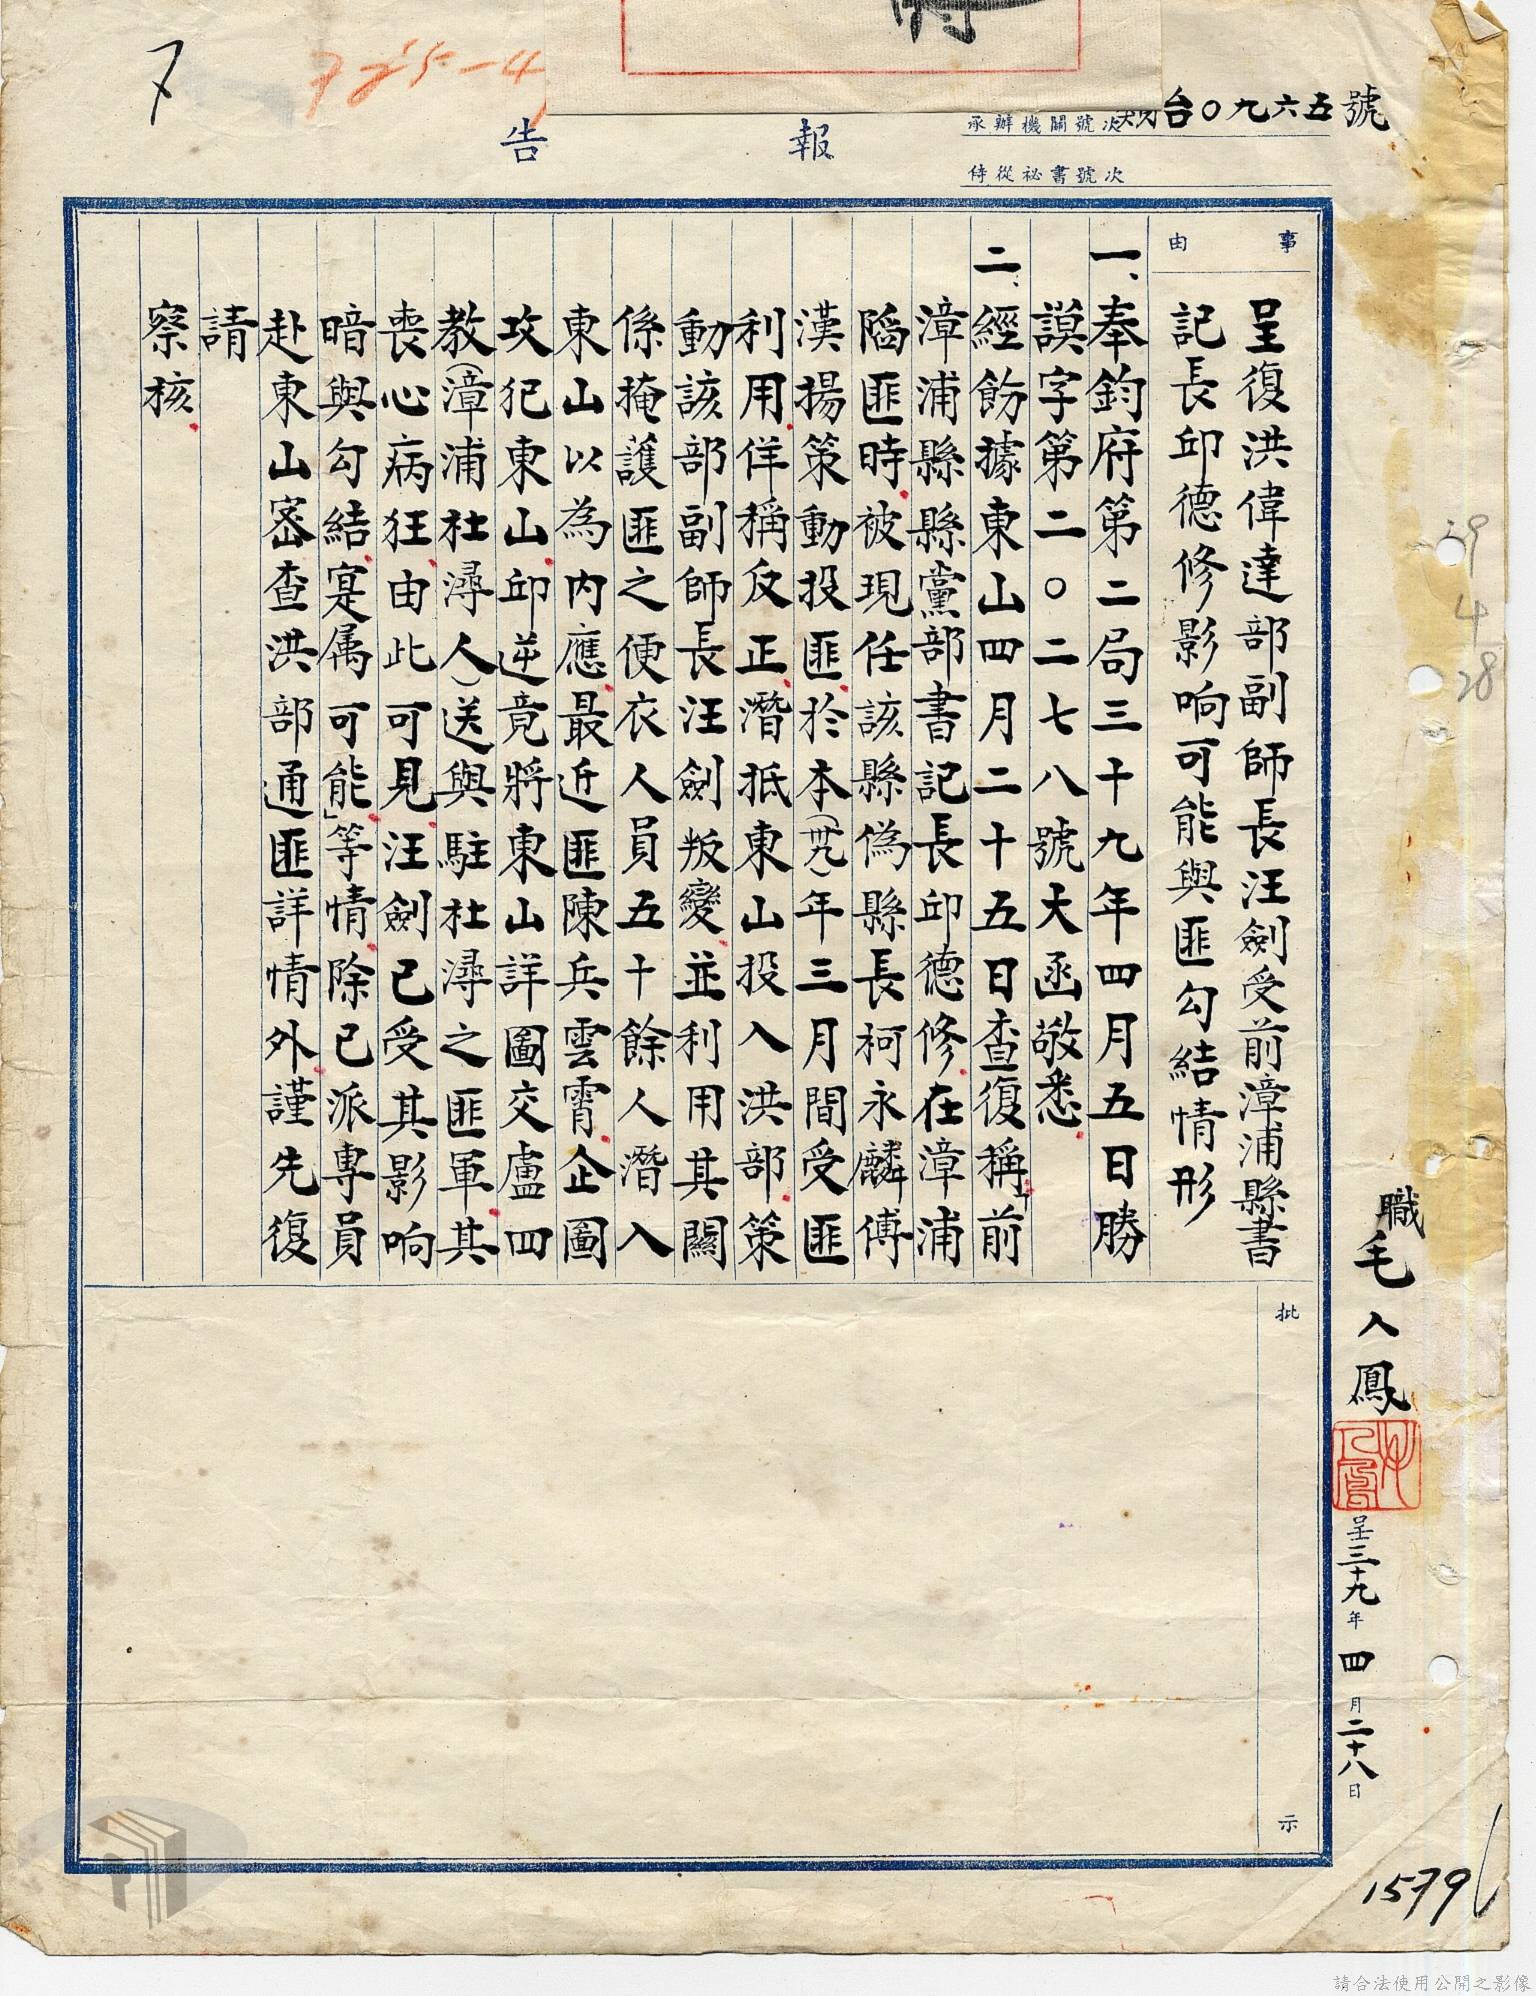 7
725-4
台〇九六五號
承辦機關號次
侍從祕書號次
報告
事由
呈復洪偉達部副師長汪劍受前漳浦縣書
記長邱德修影响可能與匪勾結情形
一、奉鈞府第二局三十九年四月五日勝
謨字第二〇二七八號大函敬悉
二、經飭據東山四月二十五日查復稱「前
漳浦縣縣黨部書記長邱德修在漳浦
陷匪時被現任該縣偽縣長柯永麟傅
漢揚策動投匪於本(卅九)年三月間受匪
利用佯稱反正潛抵東山投入洪部策
動該部副師長汪劍叛變並利用其關
係掩護匪之便衣人員五十餘人潛入
東山以為內應最近匪陳兵雲霄企圖
攻犯東山邱逆竟將東山詳圖交盧四
教(漳浦杜潯人)送與駐杜潯之匪軍其
喪心病狂由此可見汪劍已受其影响
暗與勾結寔属可能」等情除已派專員
赴東山密查洪部通匪詳情外謹先復
請
察核
批示
職毛人鳳
呈三十九年四月二十八日
39
4
28
1579
請合法使用公開之影像